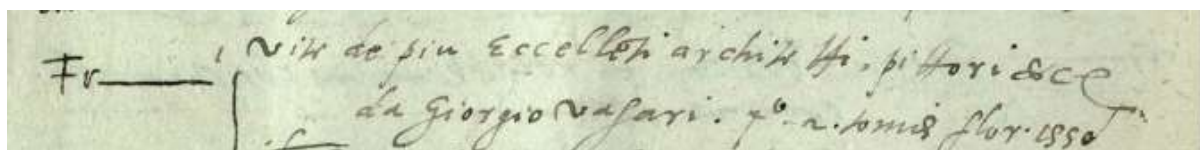 Fr
vite de piu Eccellēti architetti, pittori &ce
da Giorgio Vasari. 4º. 2. tomis flor. 1550